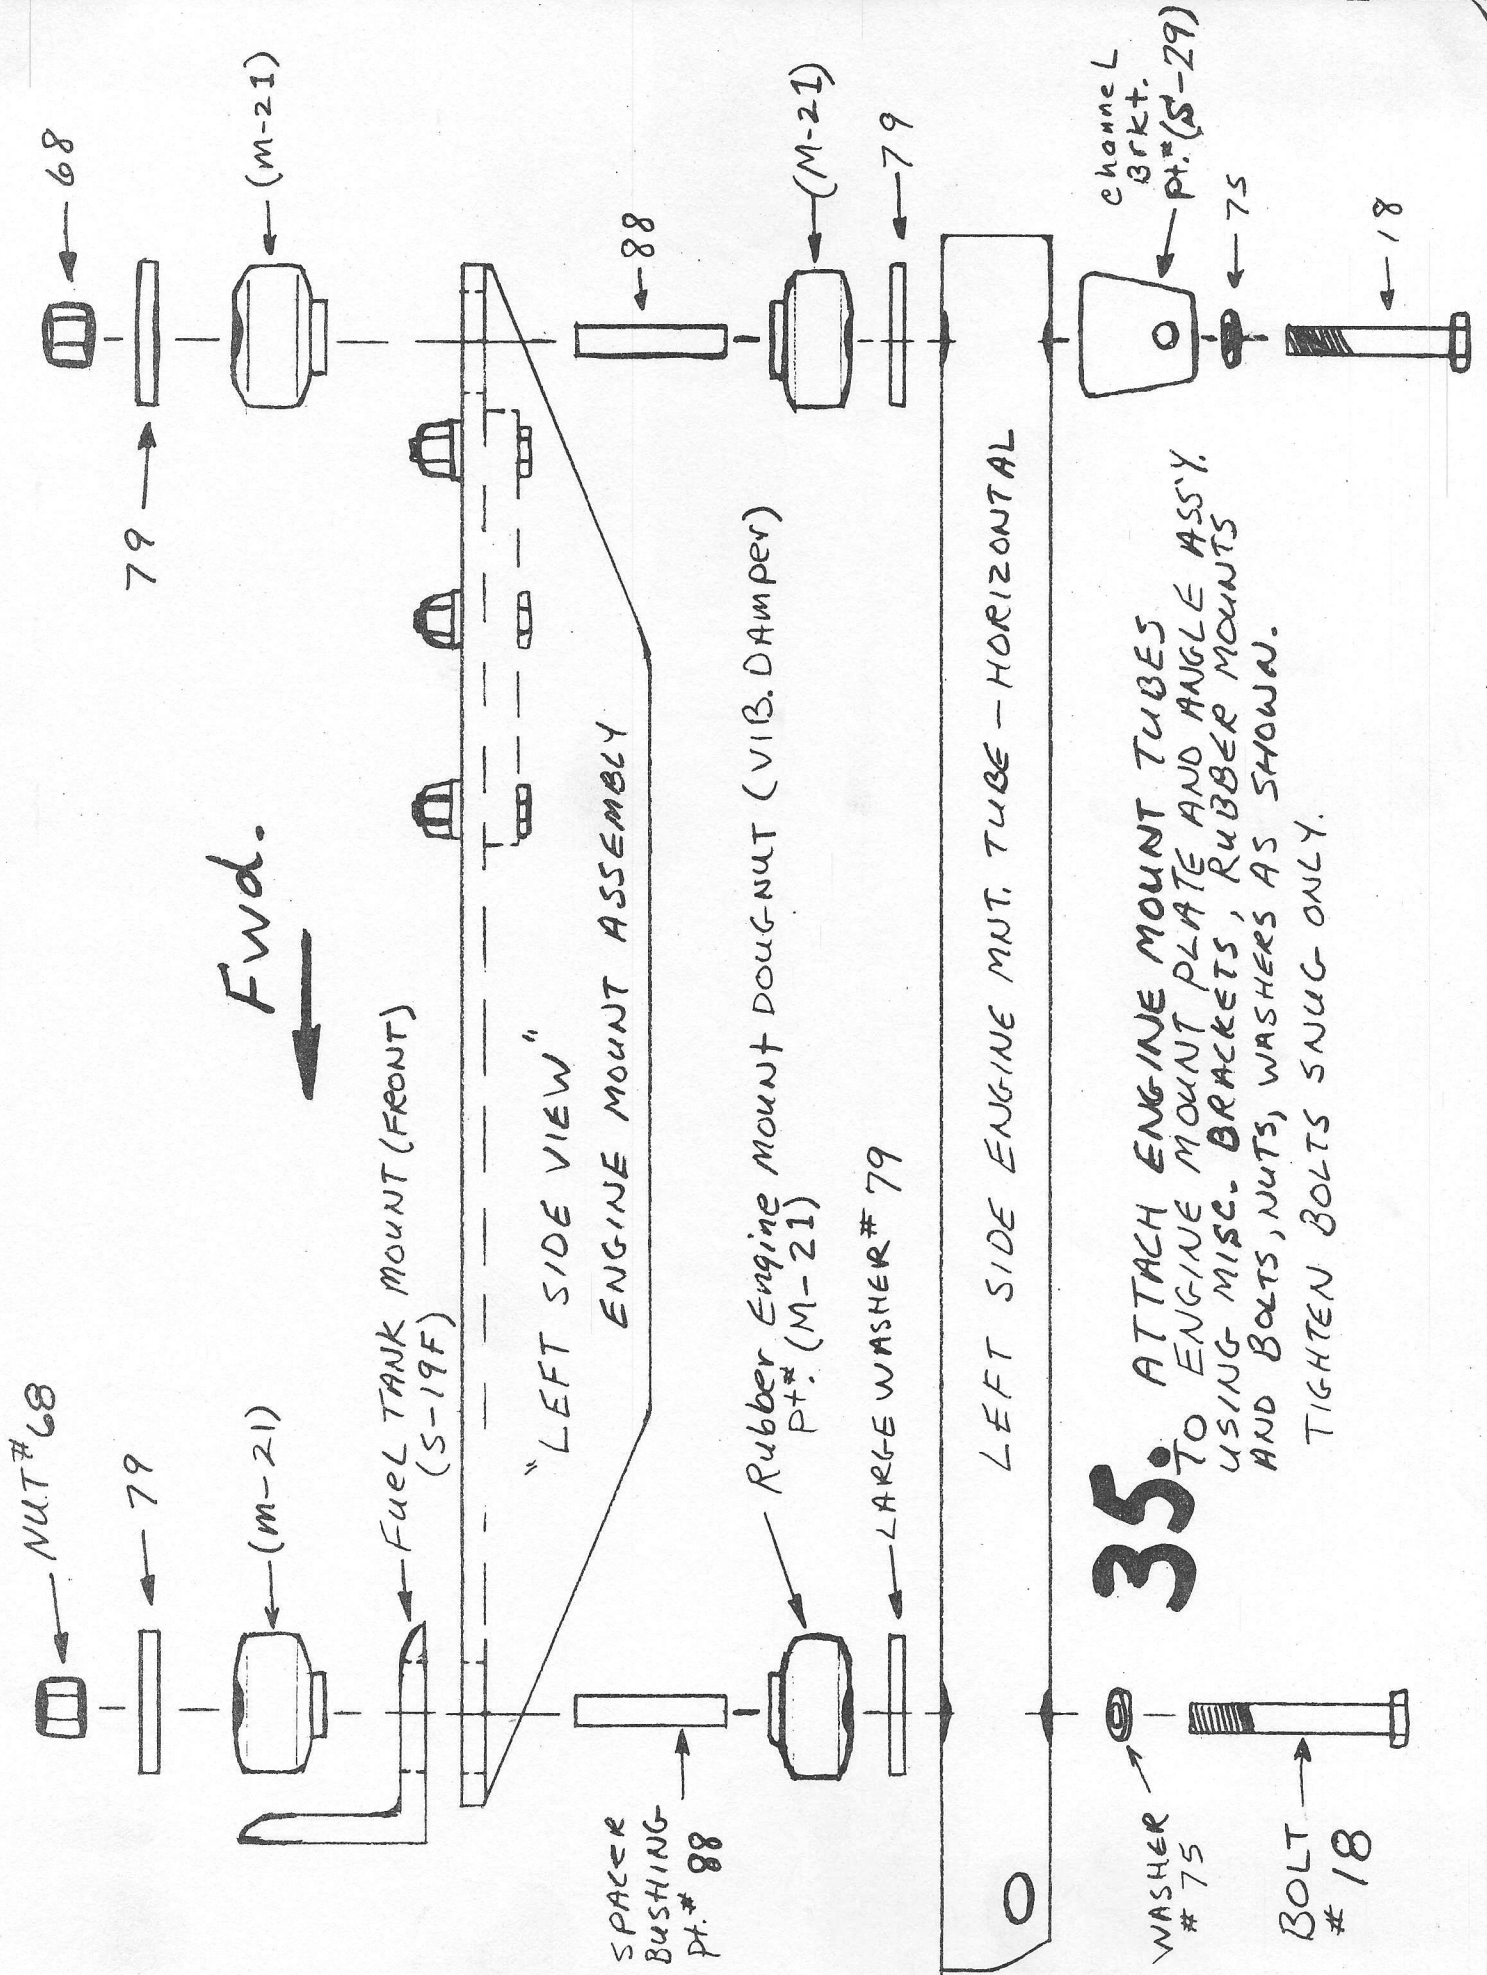 NUT # 68
68
79
79
(M-21)
(M-21)
Fwd.
Fuel TANK MOUNT (FRONT)
(S-19F)
"LEFT SIDE VIEW"
ENGINE MOUNT ASSEMBLY
SPACER
BUSHING
Pt.# 88
88
Rubber Engine Mount DOUGNUT (VIB. DAmper)
Pt.# (M-21)
(M-21)
LARGE WASHER # 79
79
LEFT SIDE ENGINE MNT. TUBE - HORIZONTAL
channel
Brkt.
pt.# (S-29)
WASHER
# 75
75
BOLT
# 18
18
35. ATTACH ENGINE MOUNT TUBES
TO ENGINE MOUNT PLATE AND ANGLE ASS'Y.
USING MISC. BRACKETS, RUBBER MOUNTS
AND BOLTS, NUTS, WASHERS AS SHOWN.
TIGHTEN BOLTS SNUG ONLY.